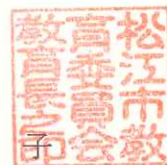 松江市教
育委員会
教育長之印
子